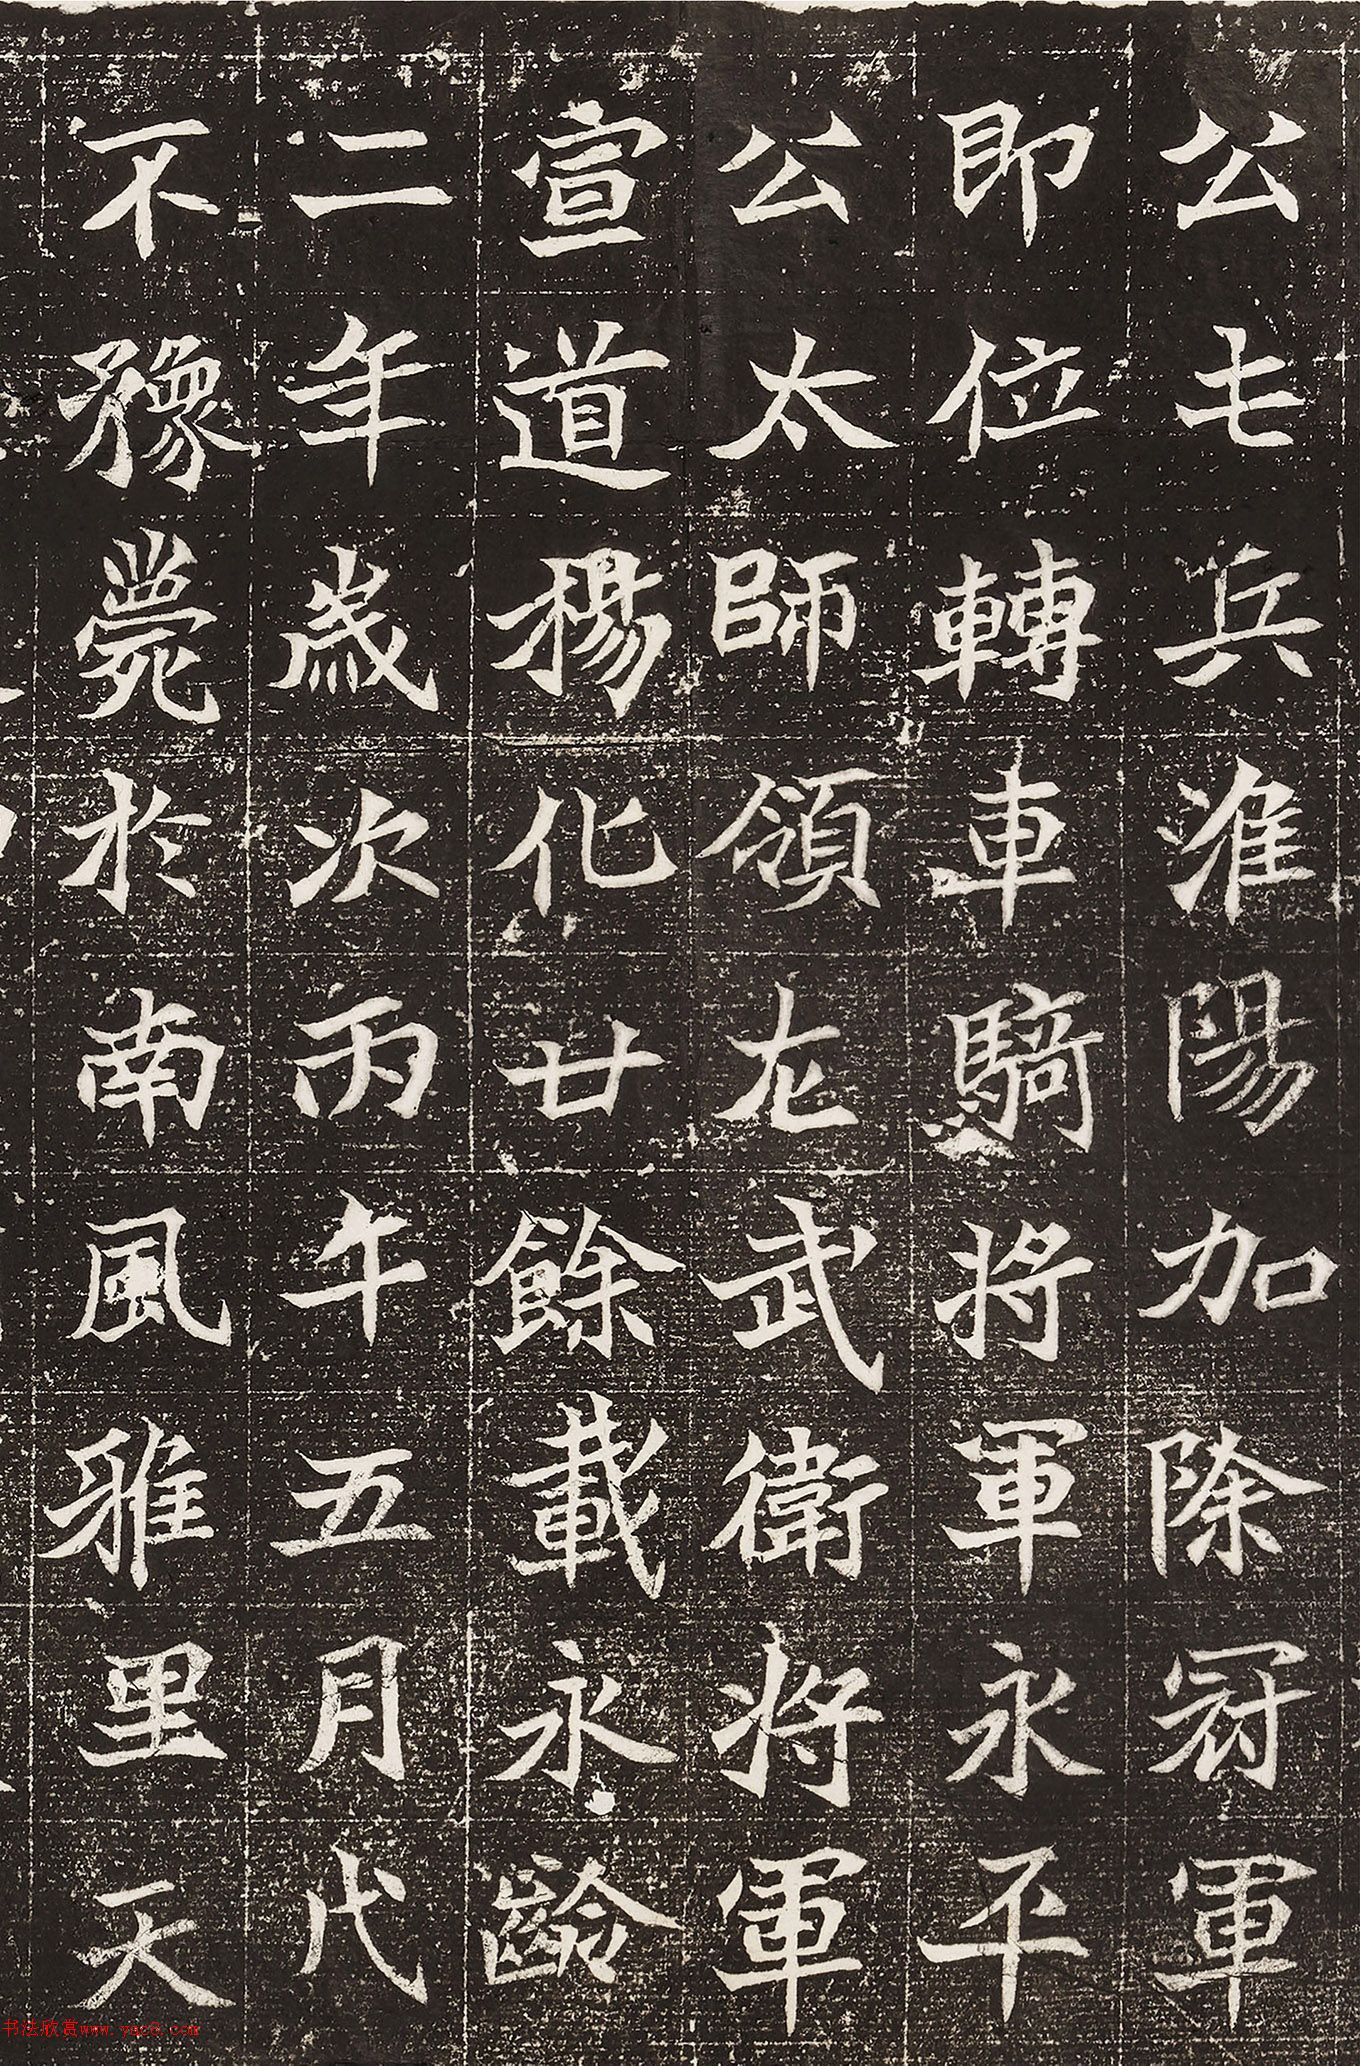 公屯兵淮陽加除冠軍
即位轉車騎將軍永平
公太師領左武衛將軍
宣道揚化廿餘載永齡
二年歲次丙午五月代
不豫薨於南風雅里天
书法欣赏www.yac8.com